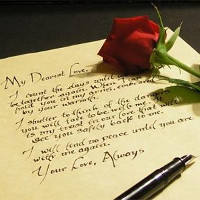 My Dearest Love,
I count the days until we are
together again. When
hold you in my arms, embraced
by your warmth.
I shudder to think of the dangers
you will face to be with me.
is my trust in our love that will
see you safely back to me.
I will find no peace until you are
with me again.
Your Love, Always